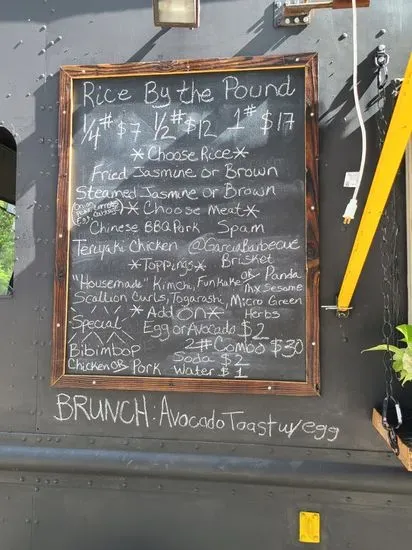 Rice By the Pound
1/4# $7 1/2# $12 1# $17
*Choose Rice*
Fried Jasmine or Brown
Steamed Jasmine or Brown
*Choose Meat*
Chinese BBQ Pork Spam
Teriyaki Chicken @GarciaBarbecue
Brisket
*Toppings*
OR Panda
"Housemade" Kimchi, Furikake Mix Sesame
Scallion Curls, Togarashi, Micro Green
Herbs
*Add on*
Special
Egg or Avocado $2
2# Combo $30
Bibimbop
Soda $2
Chicken OR Pork Water $1
BRUNCH: Avocado Toast w/ egg